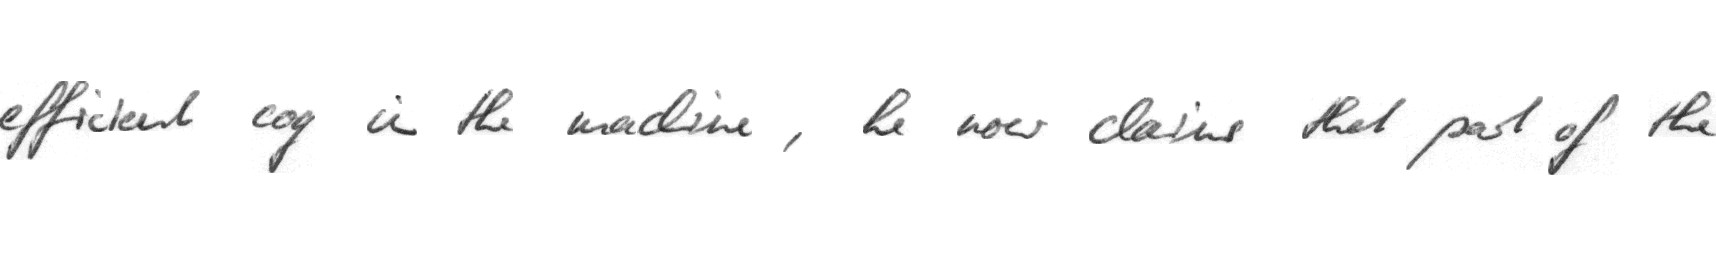 efficient cog in the machine, he now claims that part of the